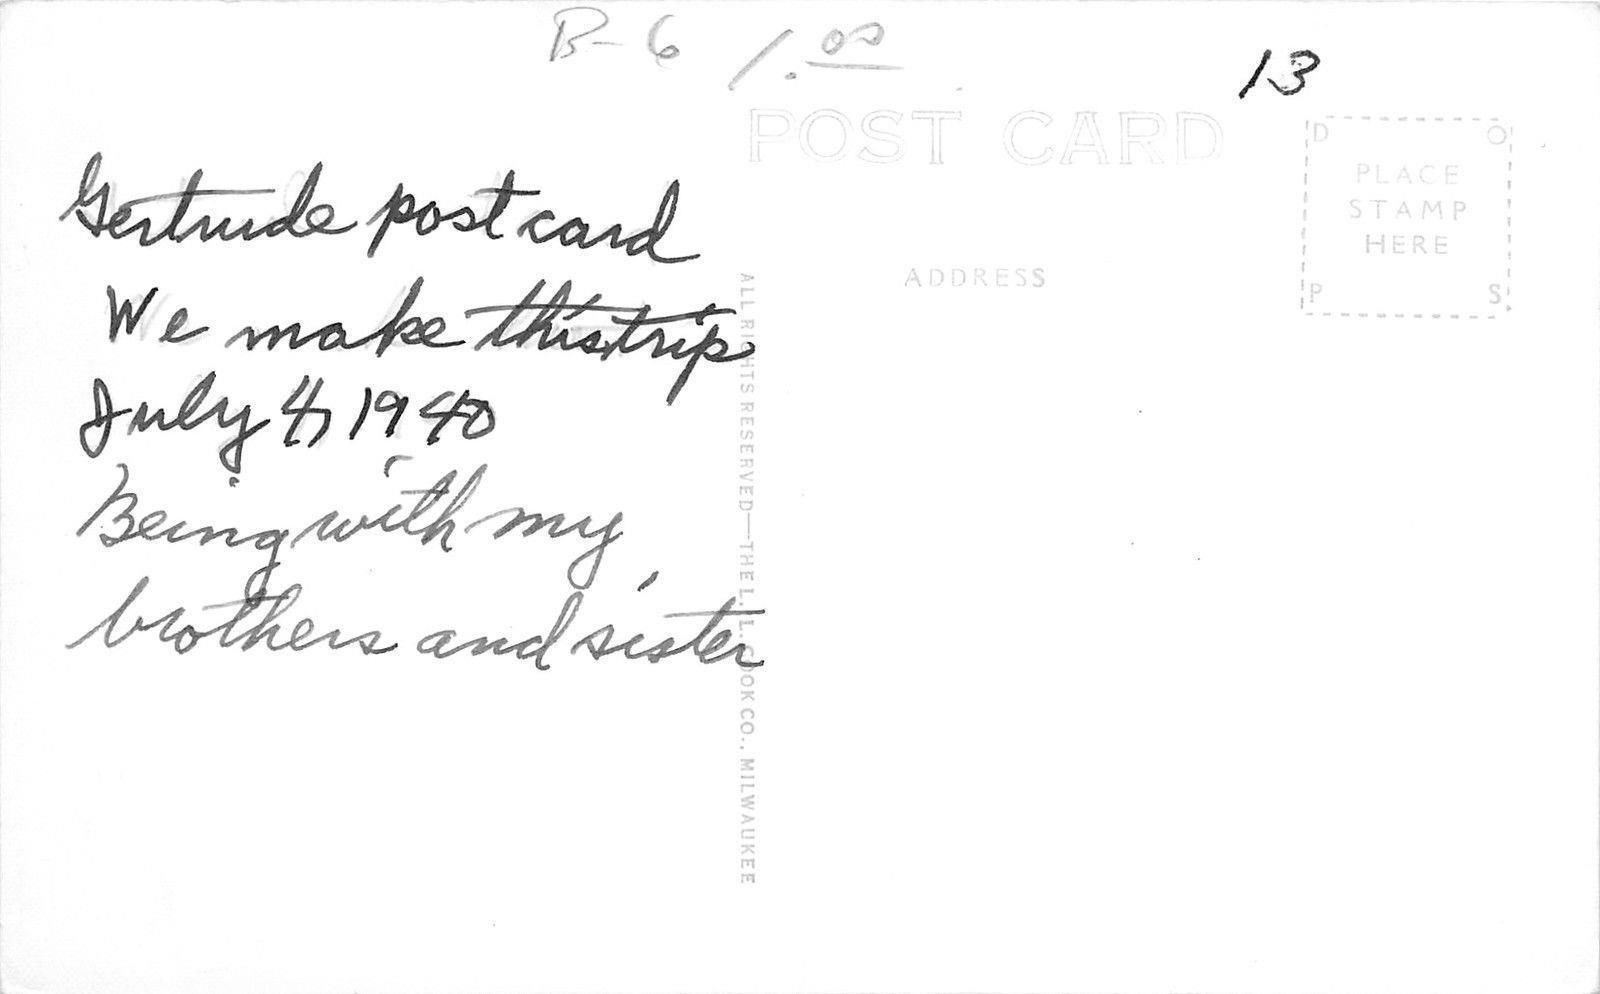 B-6 1.00
13
POST CARD
D O
PLACE
STAMP
HERE
P S
ADDRESS
Gertrude post card
We make this trip
July 4, 1940
Being with my
brothers and sister
ALL RIGHTS RESERVED—THE L. L. COOK CO., MILWAUKEE